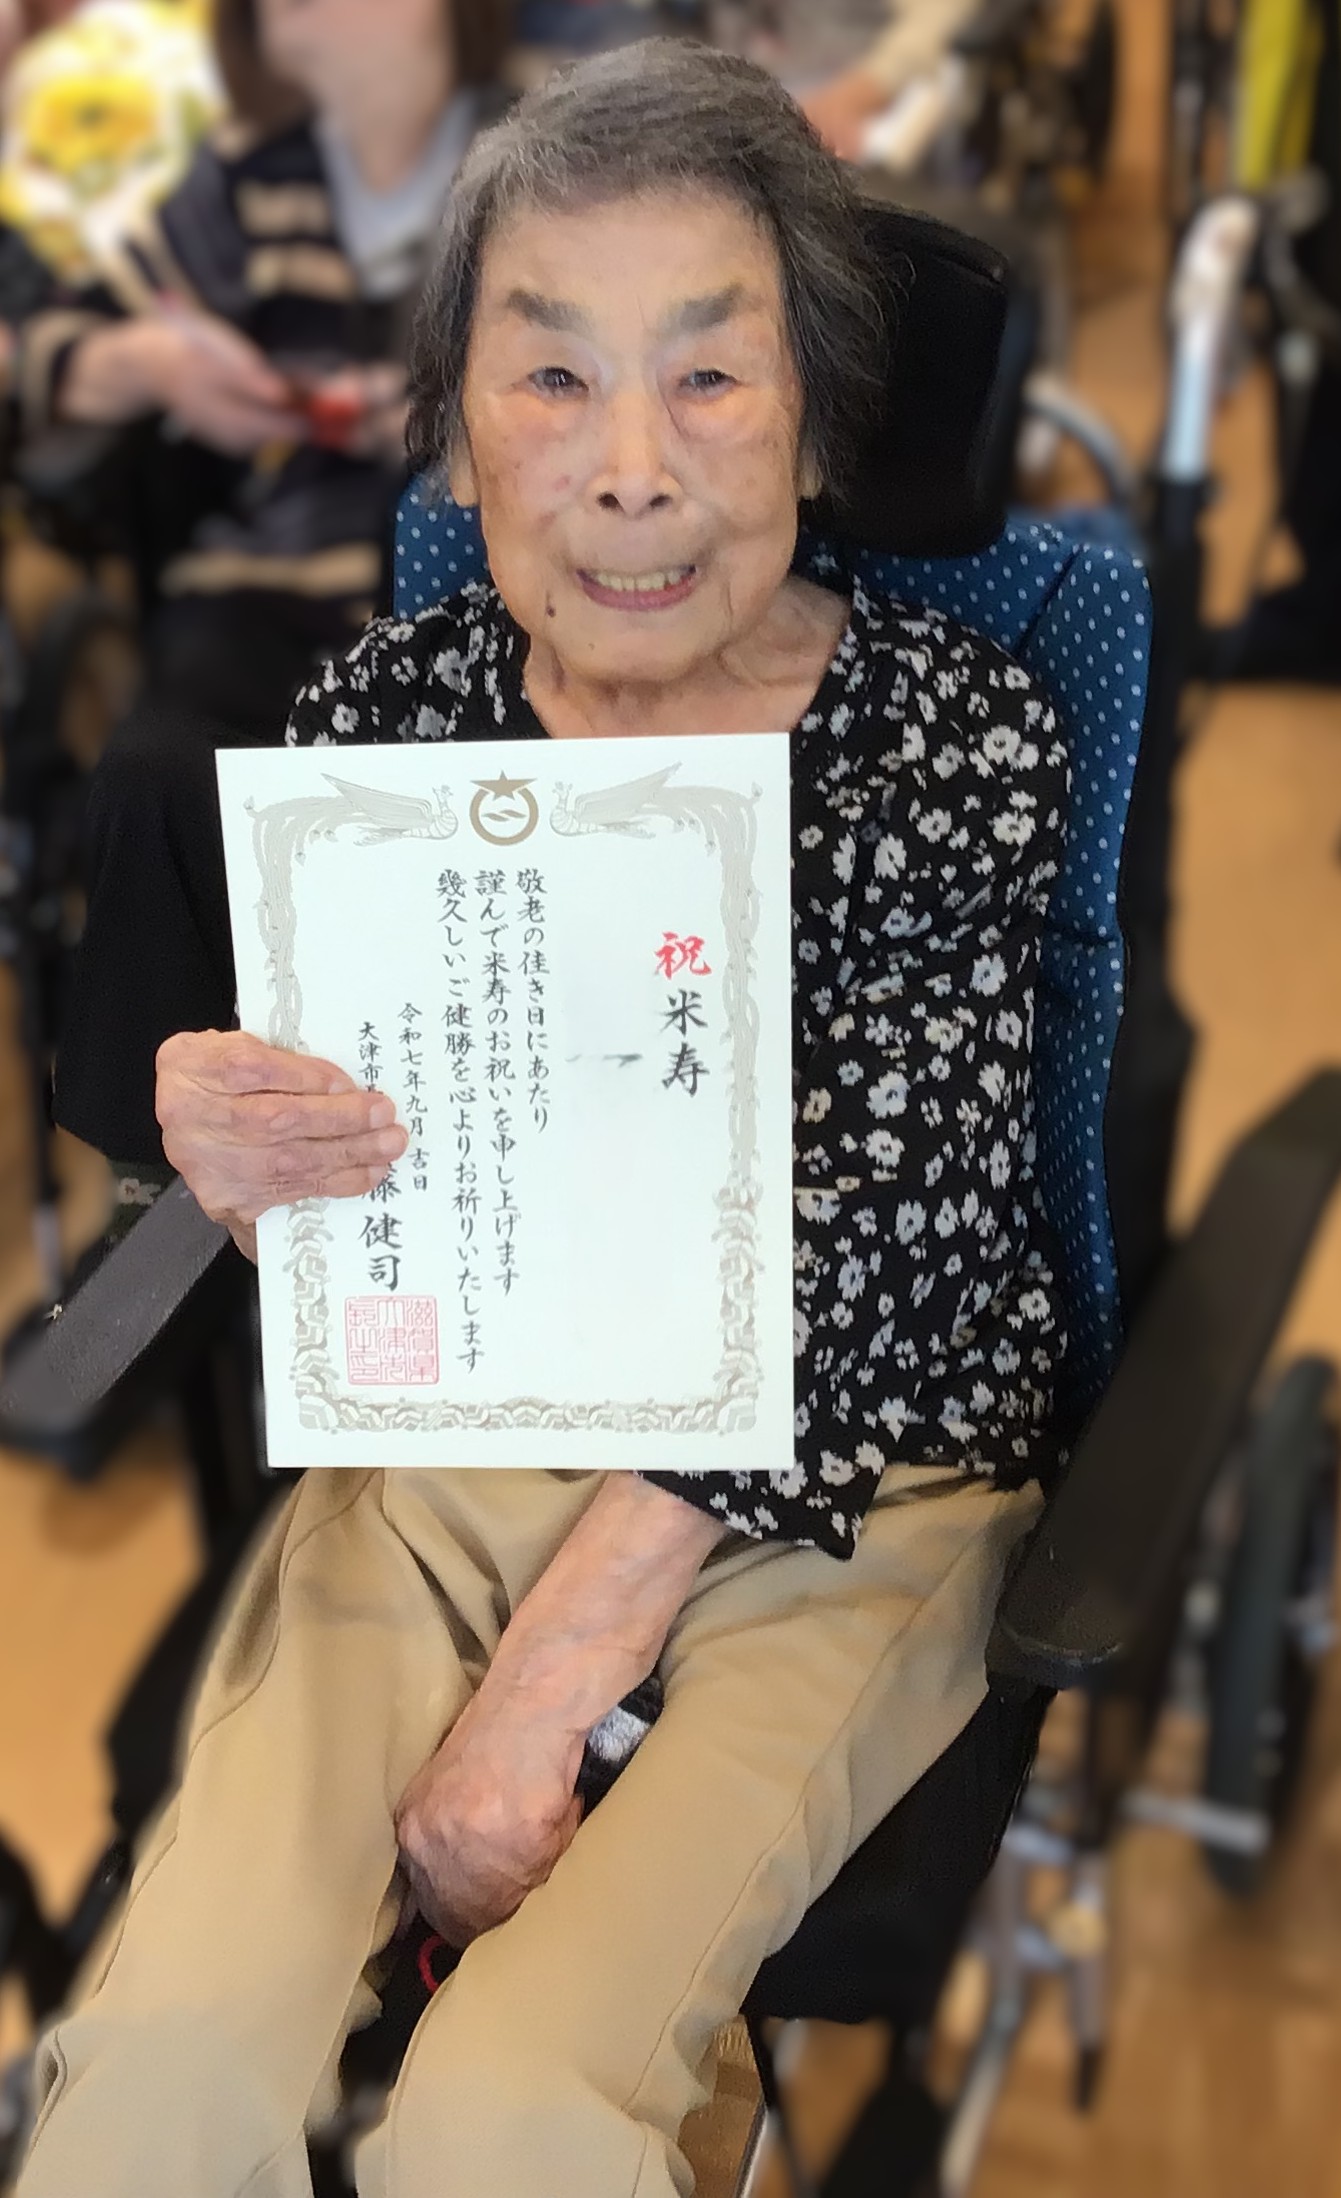 祝米寿
敬老の佳き日にあたり
謹んで米寿のお祝いを申し上げます
幾久しいご健勝を心よりお祈りいたします
令和七年九月吉日
大津市
健司
滋賀県
大津市